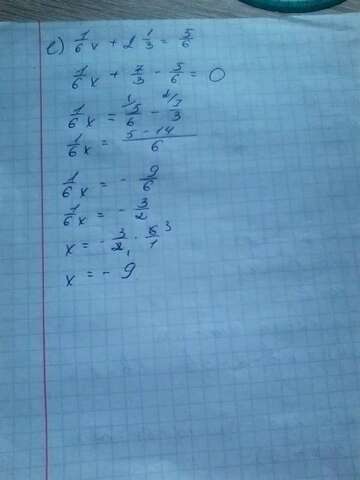 e) 1/6 x + 2 1/3 = 5/6
1/6 x + 7/3 - 5/6 = 0
1/6 x = 1/ 5/6 - 2/ 7/3
1/6 x = (5 - 14)/6
1/6 x = - 9/6
1/6 x = - 3/2
x = - 3/2 1 · 6/1 3
x = - 9